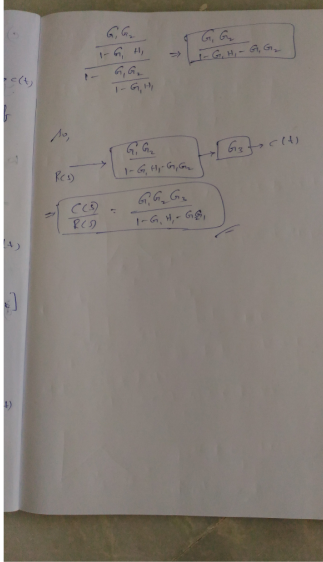 G₁G₂ / 1-G₁H₁ / 1 - G₁G₂ / 1-G₁H₁ ⇒ G₁G₂ / 1-G₁H₁-G₁G₂
So,
R(s) → G₁G₂ / 1-G₁H₁-G₁G₂ → G₃ → C(t)
⇒ C(t) / R(s) = G₁G₂G₃ / 1-G₁H₁